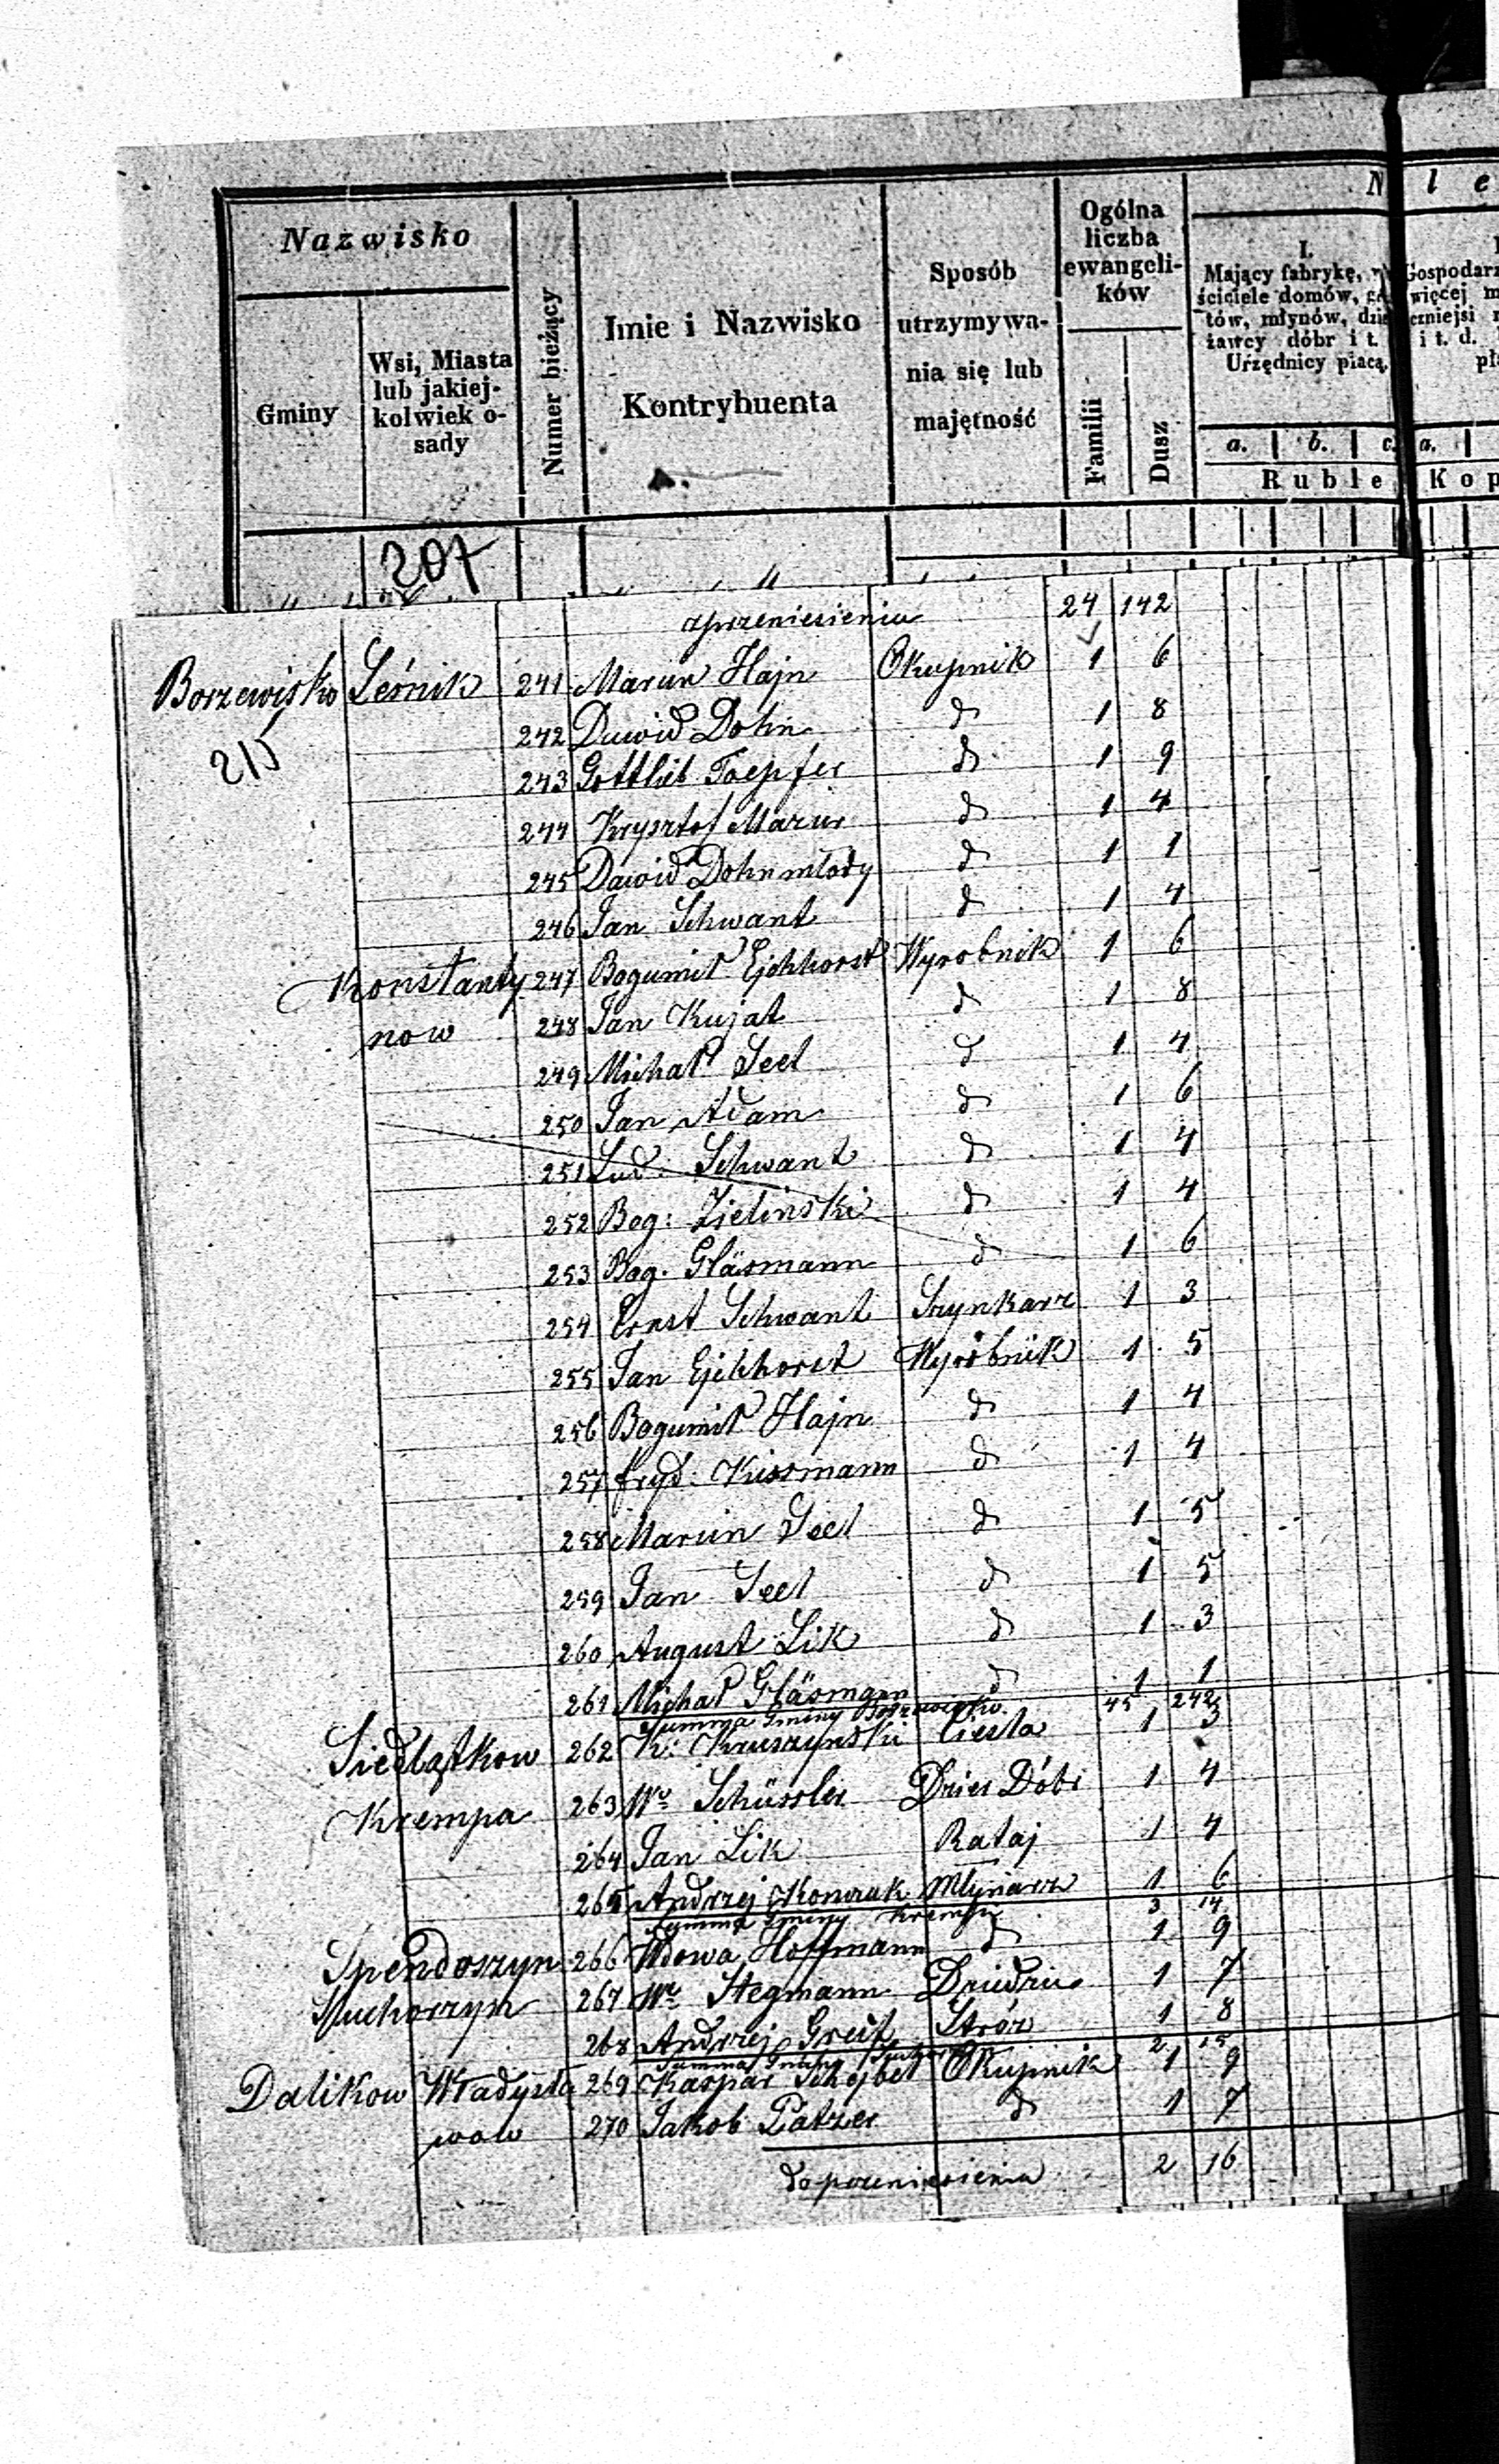 Nazwisko
Gminy
Wsi, Miasta
lub jakiej-
kolwiek o-
sady
Numer bieżący
Imie i Nazwisko
Kontrybuenta
Sposób
utrzymywa-
nia się lub
majętność
Ogólna
liczba
ewangeli-
ków
Familii
Dusz
N l e
I.
Mający fabrykę,
ściciele domów,
tów, młynów, dzie
żawcy dóbr i t.
Urzędnicy płacą.
Gospodarz
więcej m
czniejsi
i t. d.
pła
a. b. c. a.
Ruble Kop
207
zprzeniesienia 24 142
Borzewisko Leśnik 241 Marcin Hajn Okupnik 1 6
215
242 Dawid Dohn d 1 8
243 Gottlieb Toepfer d 1 9
244 Krysztof Mazur d 1 4
245 Dawid Dohn młody d 1 1
246 Jan Schwant d 1 4
Konstanty 247 Bogumił Ejchhorst Wyrobnik 1 6
now 248 Jan Kujat d 1 8
249 Michał Seel d 1 4
250 Jan Adam d 1 6
251 Lud: Schwant d 1 4
252 Bog: Zielinski d 1 4
253 Bog. Gläsmann d 1 6
254 Ernst Schwant Szynkarz 1 3
255 Jan Ejchhorst Wyrobnik 1 5
256 Bogumił Hajn d 1 4
257 fryd: Kissmann d 1 4
258 Marcin Seel d 1 5
259 Jan Seel d 1 5
260 August Lik d 1 3
261 Michał Gläsmann d 1 1
Summa Gminy Borzewisko 45 242
Siedlątkow 262 K: Kruszynski Ciesla 1 3
Krempa 263 Wy Schüssler Dzier Dóbr 1 4
264 Jan Lik Rataj 1 4
265 Andrzej Konczak Młynarz 1 6
Summa Gminy Krempa 3 14
Spendoszyn 266 Wdowa Hoffmann d 1 9
Suchorzyn 267 Wy Stegmann Dziedzic 1 7
268 Andrzej Greif Stróz 1 8
Summa Gminy 2 15
Dalikow Władysła 269 Kaspar Schejbel Okupnik 1 9
wow 270 Jakob Patzer d 1 7
do przeniesienia 2 16